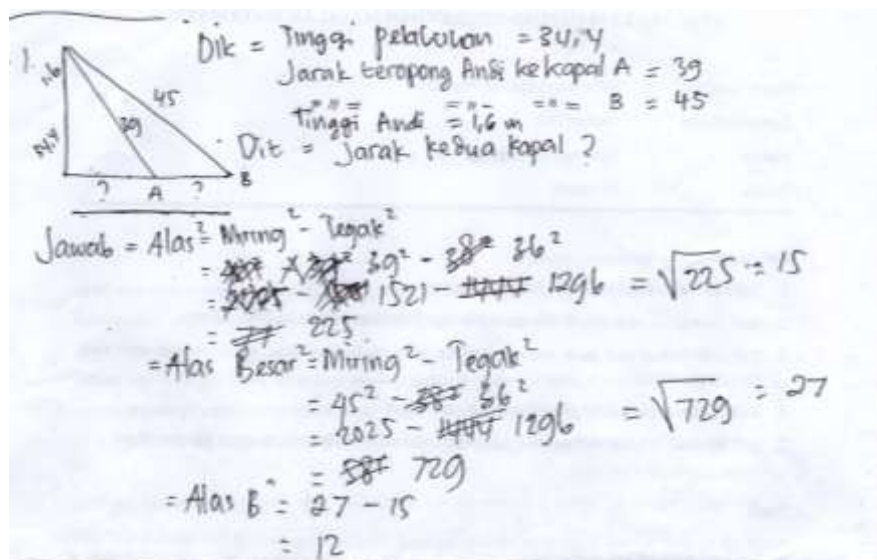 1.
1,6
45
39
34,4
? A ? B
Dik = Tinggi pelabuhan = 34,4
Jarak teropong Andi ke kapal A = 39
" " = = " - = " = B = 45
Tinggi Andi = 1,6 m
Dit = Jarak kedua kapal ?
Jawab = Alas² = Miring² - Tegak²
= 39² - 36²
= 1521 - 1296 = √225 = 15
= 225
= Alas Besar² = Miring² - Tegak²
= 45² - 36²
= 2025 - 1296 = √729 = 27
= 729
= Alas B = 27 - 15
= 12